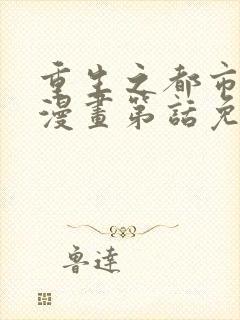 重生之都市
漫畫第話免
魯達